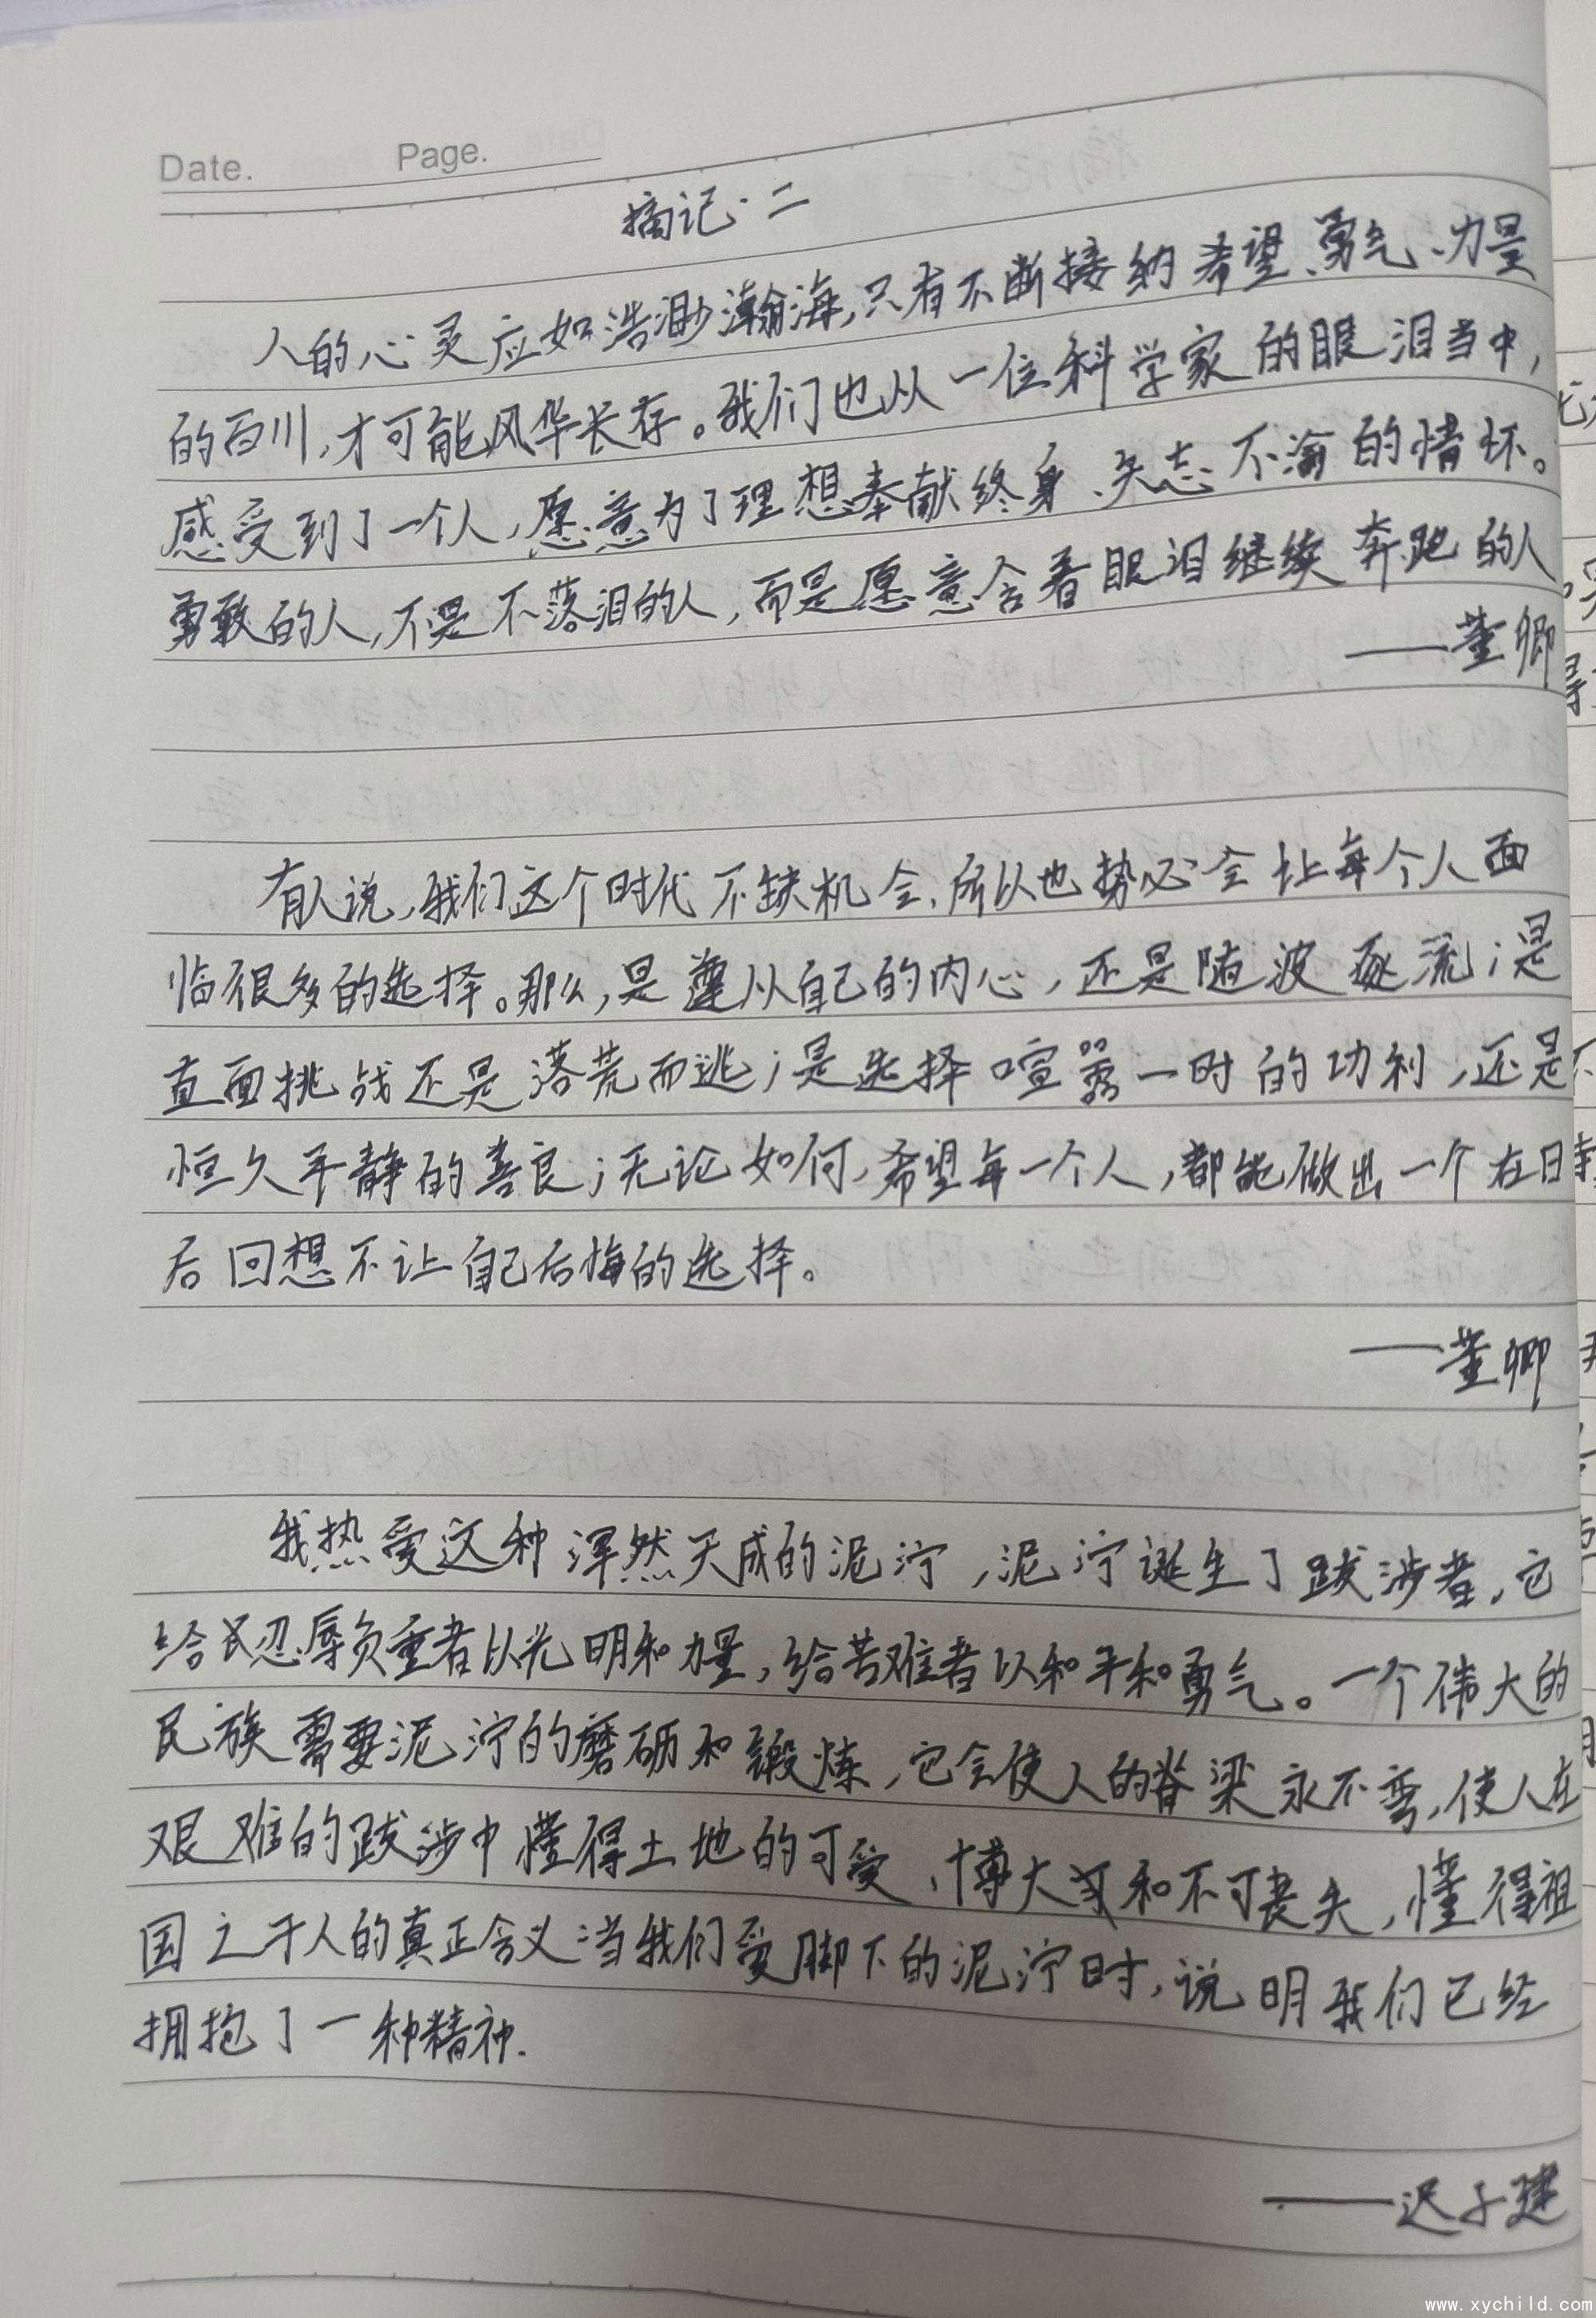 Date. Page.
摘记·二
人的心灵应如浩渺瀚海,只有不断接纳希望、勇气、力量
的百川,才可能风华长存。我们也从一位科学家的眼泪当中,
感受到了一个人,愿意为了理想奉献终身、矢志不渝的情怀。
勇敢的人,不是不落泪的人,而是愿意含着眼泪继续奔跑的人
——董卿
有人说,我们这个时代不缺机会,所以也势必会让每个人面
临很多的选择。那么,是遵从自己的内心,还是随波逐流;是
直面挑战还是落荒而逃;是选择喧嚣一时的功利,还是
恒久平静的善良;无论如何,希望每一个人,都能做出一个在日
后回想不让自己后悔的选择。
——董卿
我热爱这种浑然天成的泥泞,泥泞诞生了跋涉者,它
给忍辱负重者以光明和力量,给苦难者以和平和勇气。一个伟大的
民族需要泥泞的磨砺和锻炼,它会使人的脊梁永不弯,使人在
艰难的跋涉中懂得土地的可爱、博大和不可丧失,懂得祖
国之于人的真正含义:当我们爱脚下的泥泞时,说明我们已经
拥抱了一种精神.
——迟子建
www.xychild.com